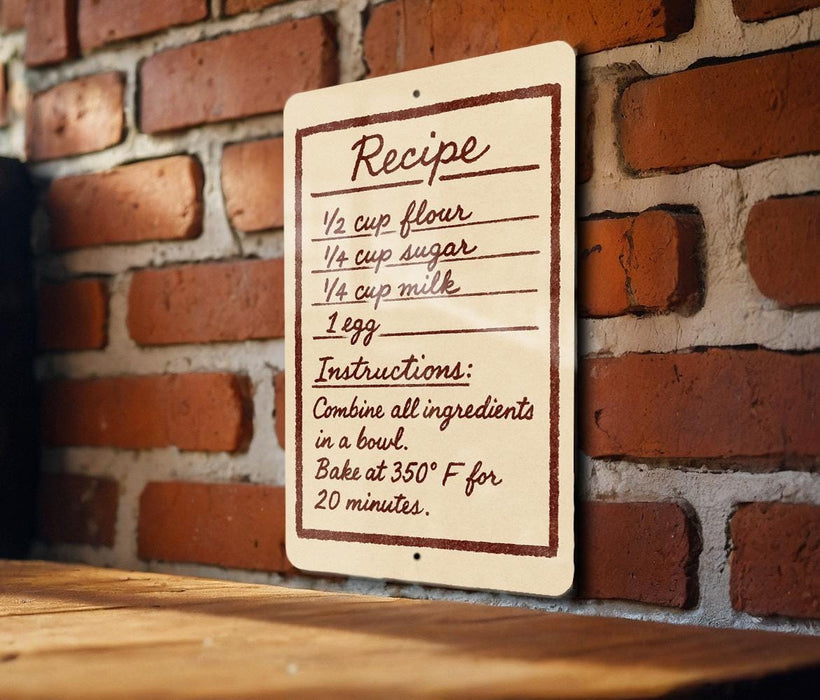 Recipe
1/2 cup flour
1/4 cup sugar
1/4 cup milk
1 egg
Instructions:
Combine all ingredients
in a bowl.
Bake at 350° F for
20 minutes.